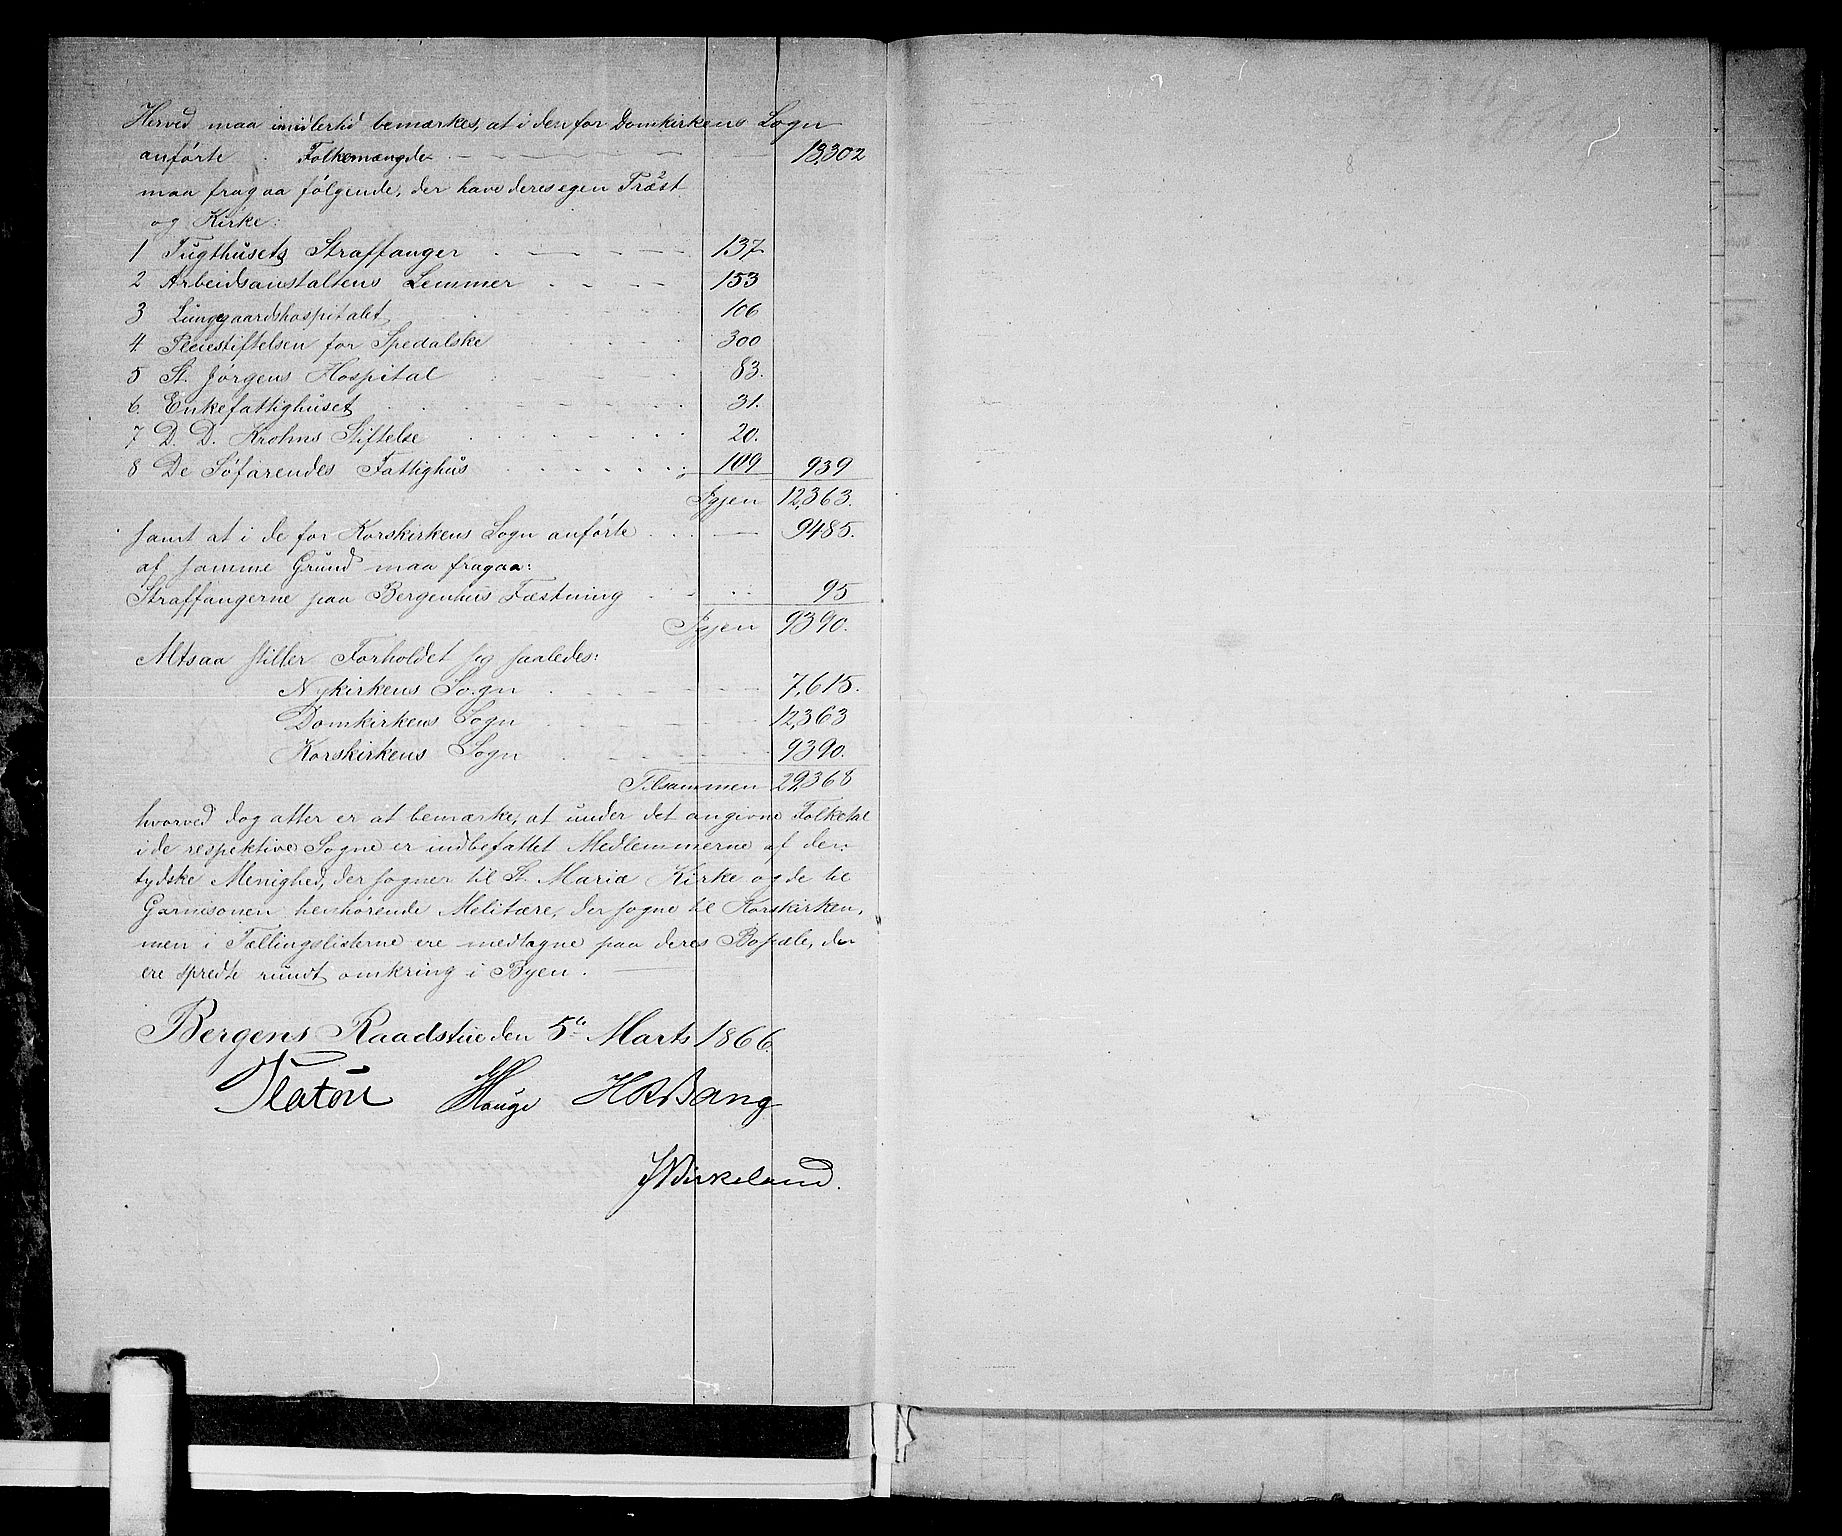 Herved maa imidlertid bemærkes, at i den for Domkirkens Sogn
anförte Folkemængde 13,302
maa fragaa følgende, der have deres egen Præst
og Kirke:
1 Tugthusets Straffanger 137
2 Arbeidsanstaltens Lemmer 153
3 Lungegaardshospitalet 106
4. Pleiestiftelsen for Spedalske 300
5 St. Jørgens Hospital 83.
6. Enkefattighuset 31.
7 D. D. Krohns Stiftelse 20.
8 De Søfarendes Fattighus 109 939
Igjen 12,363.
samt at i de for Korskirkens Sogn anførte 9485.
af samme Grund maa fragaa:
Straffangerne paa Bergenhus Fæstning 95
Igjen 9390.
Altsaa stiller Forholdet sig saaledes:
Nykirkens Sogn 7,615.
Domkirkens Sogn 12,363
Korskirkens Sogn 9390.
Tilsammen 29,368
hvorved dog atter er at bemærke, at under det angivne Folketal
i de respektive Sogne er indbefattet Medlemmerne af den
tydske Menighed, der sogner til St. Mariæ Kirke og de til
Garnisonen henhørende Melitære, der sogne til Korskirken,
men i Tællingslisterne ere medtagne paa deres Bopæle, der
ere spredte rundt omkring i Byen.
Bergens Raadstue den 5te Marts 1866.
Platou Hauge Bang
Birkeland.
8